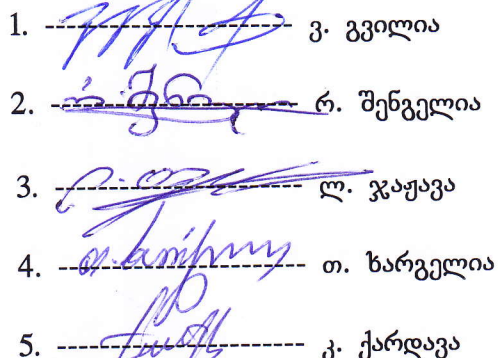 1. ---------------------------- ვ. გვილია
2. ---------------------------- რ. შენგელია
3. ---------------------------- ლ. ჯაჟავა
4. ---------------------------- თ. ხარგელია
5. ---------------------------- კ. ქარდავა